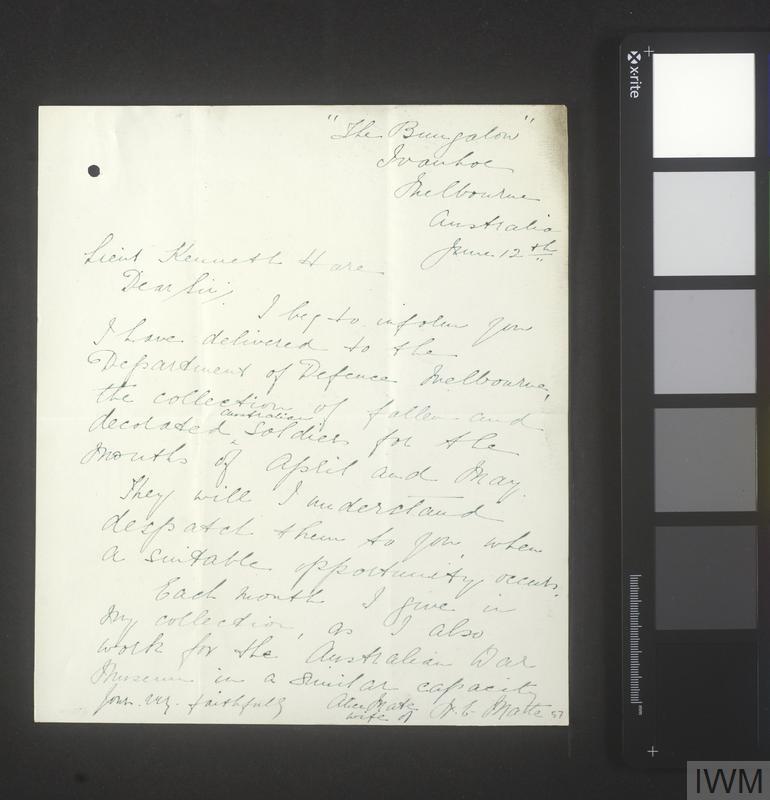 "The Bungalow"
Ivanhoe
Melbourne
Australia
June 12th
Lieut Kenneth Hare
Dear Sir,
I beg to inform you
I have delivered to the
Department of Defence Melbourne,
the collection of fallen and
decorated Australian soldiers for the
months of April and May.
They will I understand
despatch them to you, when
a suitable opportunity occurs.
Each month I give in
my collection, as I also
work for the Australian War
Museum in a similar capacity
Yours very faithfully Alice
wife of H. C.
57
x-rite
IWM